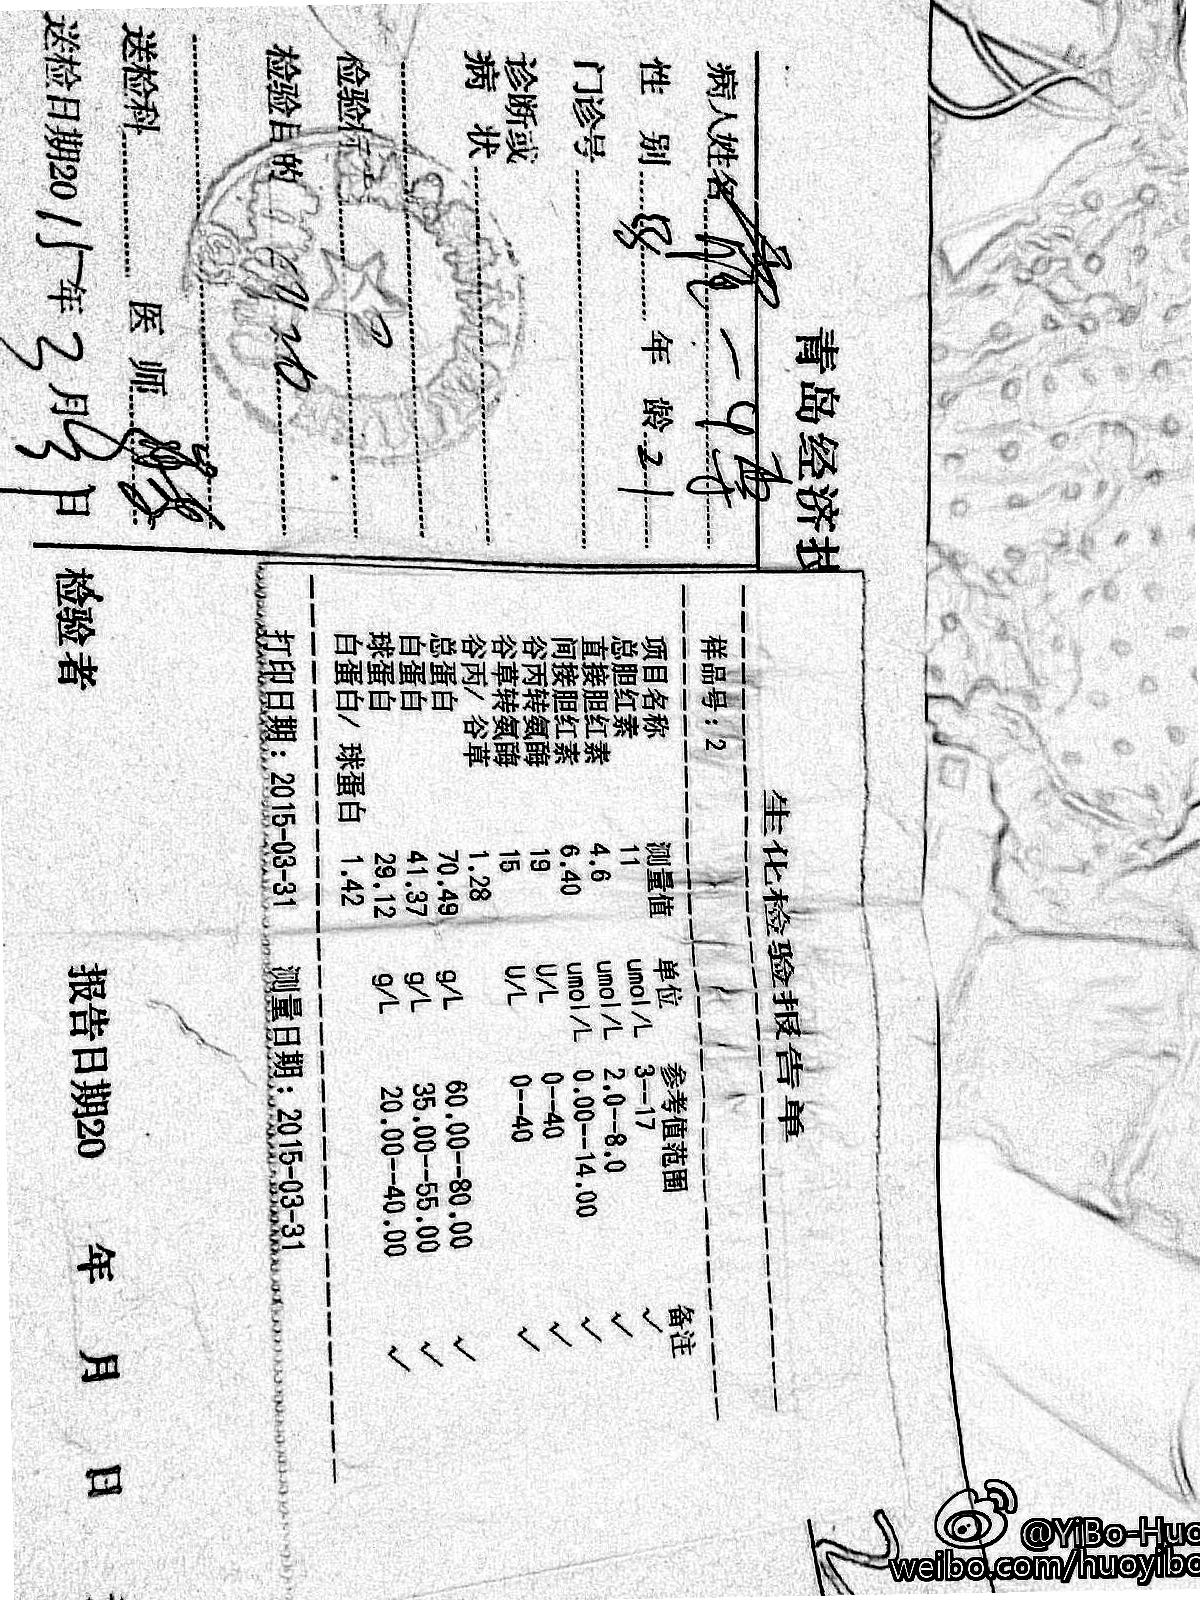 青岛经济技
病人姓名
性 别 男 年 龄 21
门诊号
诊断或
病 状
检验标
检验目的
送检科 医 师
送检日期2015年3月31日
生化检验报告单
样品号:2
项目名称 测量值 单位 参考值范围 备注
总胆红素 11 umol/L 3--17 ✓
直接胆红素 4.6 umol/L 2.0--8.0 ✓
间接胆红素 6.40 umol/L 0.00--14.00 ✓
谷丙转氨酶 19 U/L 0--40 ✓
谷草转氨酶 15 U/L 0--40 ✓
谷丙/ 谷草 1.28
总蛋白 70.49 g/L 60.00--80.00 ✓
白蛋白 41.37 g/L 35.00--55.00 ✓
球蛋白 29.12 g/L 20.00--40.00 ✓
白蛋白/ 球蛋白 1.42
打印日期:2015-03-31 测量日期:2015-03-31
检验者 报告日期20 年 月 日
@YiBo-Huo
weibo.com/huoyibo